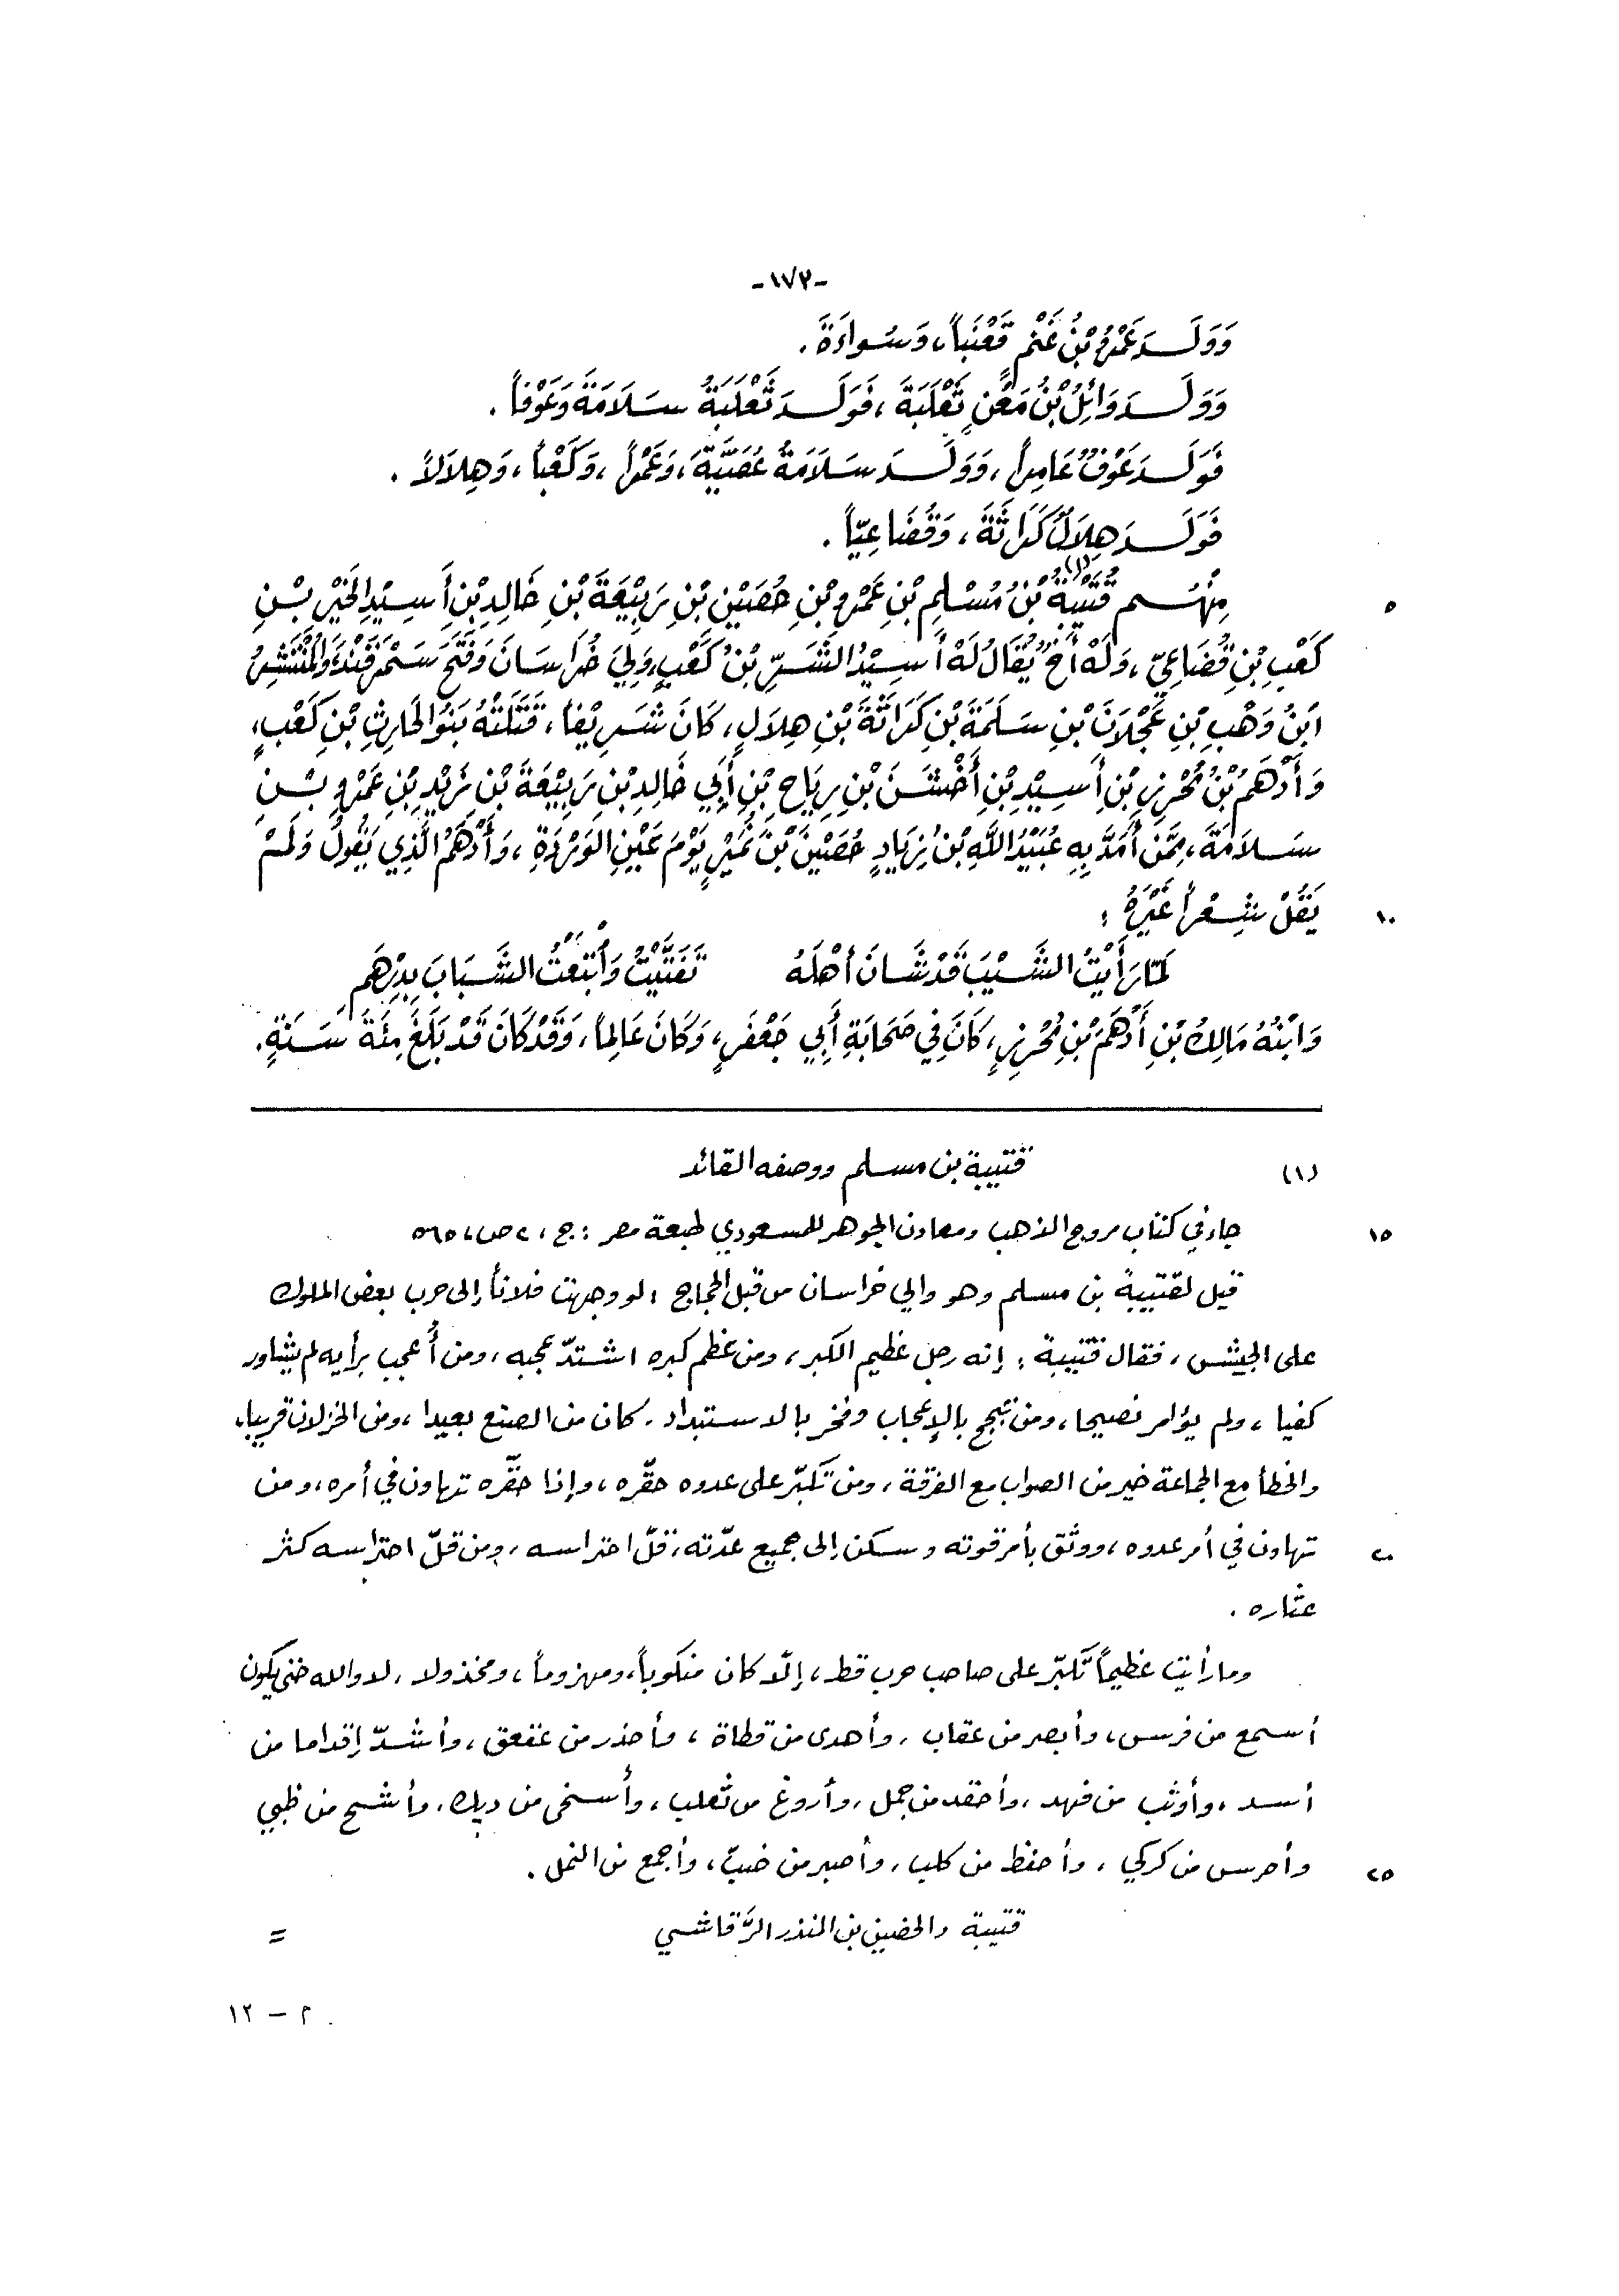 -١٧٣-
وَوَلَدَ عَمْرُو بْنُ غَنْمٍ قَعْنَباً، وَسُواءَةَ.
وَوَلَدَ وَائِلُ بْنُ مَعْنٍ ثَعْلَبَةَ، فَوَلَدَ ثَعْلَبَةُ سَلَامَةَ وَعَوْفاً.
فَوَلَدَ عَوْفٌ عَامِراً، وَوَلَدَ سَلَامَةُ عُصَيَّةَ، وَعَمْراً، وَكَعْباً، وَهِلَالاً.
فَوَلَدَ هِلَالٌ كَرَاثَةَ، وَقُضَاعِيّاً.
مِنْهُم قُتَيْبَةُ(١) بْنُ مُسْلِمِ بْنِ عَمْرِو بْنِ حُصَيْنِ بْنِ رَبِيْعَةَ بْنِ خَالِدِ بْنِ أَسِيْدِ الخَيْرِ بْنِ ٥
كَعْبِ بْنِ قُضَاعِيٍّ، وَلَهُ أَخٌ يُقَالُ لَهُ أَسِيْدُ الشَّرِّ بْنُ كَعْبٍ، وَلِيَ خُرَاسَانَ وَفَتَحَ سَمْرَقَنْدَ، وَالمُنْتَشِرُ
ابْنُ وَهْبِ بْنِ عَجْلَانَ بْنِ سَلَمَةَ بْنِ كَرَاثَةَ بْنِ هِلَالٍ، كَانَ شَرِيْفاً، قَتَلَتْهُ بَنُو الحَارِثِ بْنِ كَعْبٍ،
وَأَدْهَمُ بْنُ مُحْرِزِ بْنِ أَسِيْدِ بْنِ أَخْشَنَ بْنِ رِيَاحِ بْنِ أَبِي خَالِدِ بْنِ رَبِيْعَةَ بْنِ زَيْدِ بْنِ عَمْرِو بْنِ
سَلَامَةَ، مِمَّن أَمَدَّ بِهِ عُبَيْدُ اللَّهِ بْنُ زِيَادٍ حُصَيْنَ بْنَ نُمَيْرٍ يَوْمَ عَيْنِ الوَرْدَةِ، وَأَدْهَمُ الَّذِي يَقُولُ وَلَمْ
يَقُلْ شِعْراً غَيْرَهُ: ١٠
لَمَّا رَأَيْتُ الشَّيْبَ قَدْ شَانَ أَهْلَهُ تَفَتَّيْتُ وَأَبْتَعْتُ الشَّبَابَ بِدِرْهَمِ
وَابْنُهُ مَالِكُ بْنِ أَدْهَمَ بْنِ مُحْرِزٍ، كَانَ فِي صَحَابَةِ أَبِي جَعْفَرٍ، وَكَانَ عَالِماً، وَقَدْ كَانَ قَدْ بَلَغَ مِئَةَ سَنَةٍ.
(١) قتيبة بن مسلم ووصفه القائد
جاء في كتاب مروج الذهب ومعادن الجوهر للمسعودي طبعة مصر: ج، ٢ ص، ٥٦٥ ١٥
قيل لقتيبة بن مسلم وهو والي خراسان من قبل الحجاج: لو وجهت فلاناً إلى حرب بعض الملوك
على الجيش، فقال قتيبة: إنه رجل عظيم الكبر، ومن عظم كبره اشتدّ عجبه، ومن أُعجب برأيه لم يشاور
كفيا، ولم يؤامر نصيحا، ومن تبجح بالإعجاب وفخر بالاستبداد، كان من الصنع بعيدا، ومن الخذلان قريبا،
والخطأ مع الجماعة خير من الصواب مع الفرقة، ومن تكبّر على عدوه حقّره، وإذا حقّره تهاون في أمره، ومن
تهاون في أمر عدوه، ووثق بأمر قوته وسكن إلى جميع عدّته، قلّ احتراسه، ومن قلّ احتراسه كثر ٢٠
عثاره.
وما رأيت عظيماً تكبّر على صاحب حرب قط، إلّا كان منكوباً، ومهزوماً، ومخذولا، لا والله حتى يكون
أسمع من فرس، وأبصر من عقاب، وأهدى من قطاة، وأحذر من عقعق، وأشدّ إقداما من
أسد، وأوثب من فهد، وأحقد من جمل، وأروغ من ثعلب، وأسخى من ديك، وأشح من ظبي
وأحرس من كركي، وأحفظ من كلب، وأصبر من ضبّ، وأجمع من النمل. ٢٥
قتيبة والحضين بن المنذر الرَّقاشي =
م - ١٢